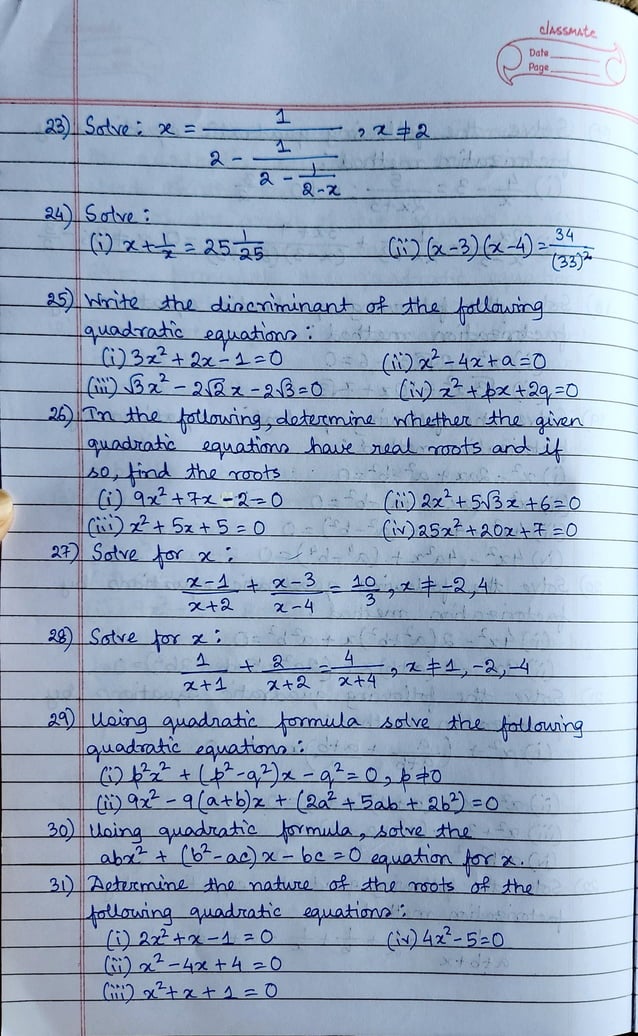 classmate
Date
Page
23) Solve: x = 1/(2 - 1/(2 - 1/(2-x))), x ≠ 2
24) Solve:
(i) x + 1/x = 25 1/25 (ii) (x-3)(x-4) = 34/(33)²
25) Write the discriminant of the following
quadratic equations:
(i) 3x² + 2x - 1 = 0 (ii) x² - 4x + a = 0
(iii) √3x² - 2√2x - 2√3 = 0 (iv) x² + px + 2q = 0
26) In the following, determine whether the given
quadratic equations have real roots and if
so, find the roots
(i) 9x² + 7x - 2 = 0 (ii) 2x² + 5√3x + 6 = 0
(iii) x² + 5x + 5 = 0 (iv) 25x² + 20x + 7 = 0
27) Solve for x:
(x-1)/(x+2) + (x-3)/(x-4) = 10/3, x ≠ -2, 4
28) Solve for x:
1/(x+1) + 2/(x+2) = 4/(x+4), x ≠ 1, -2, -4
29) Using quadratic formula solve the following
quadratic equations:
(i) p²x² + (p² - q²)x - q² = 0, p ≠ 0
(ii) 9x² - 9(a+b)x + (2a² + 5ab + 2b²) = 0
30) Using quadratic formula, solve the
abx² + (b² - ac)x - bc = 0 equation for x.
31) Determine the nature of the roots of the
following quadratic equations:
(i) 2x² + x - 1 = 0 (iv) 4x² - 5 = 0
(ii) x² - 4x + 4 = 0
(iii) x² + x + 1 = 0